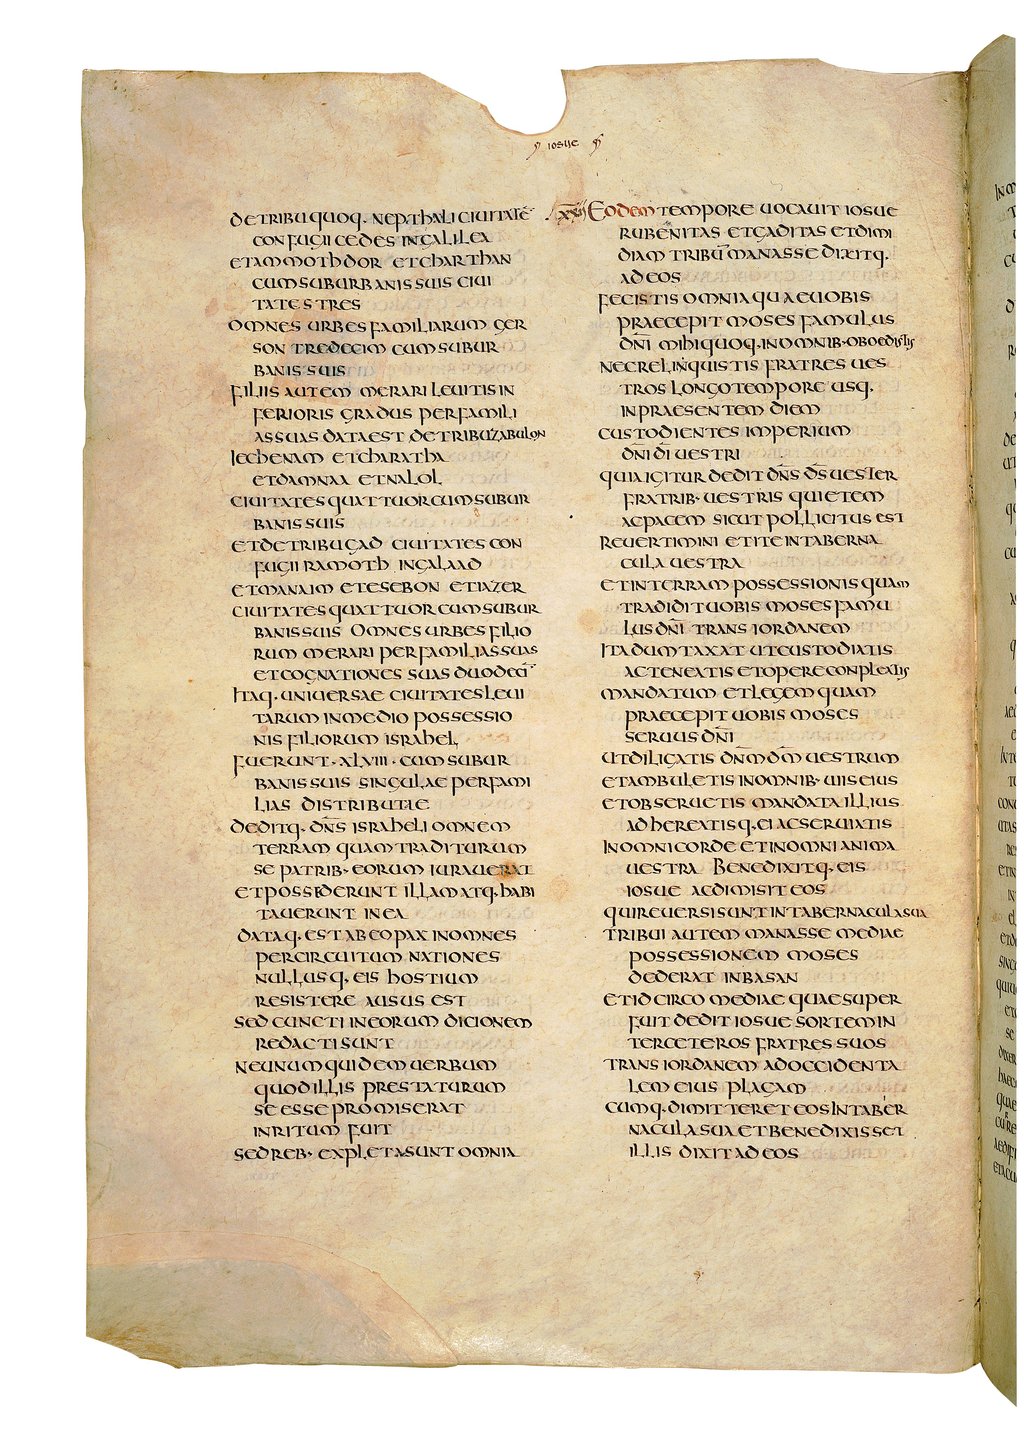 IOSUE
DETRIBU QUOQ· NEPTHALI CIUITATĒ
CONFUGII CEDES IN GALILEA
ETAMMOTH DOR ET CHARTHAN
CUM SUBURBANIS SUIS CIUI
TATES TRES
OMNES URBES FAMILIARUM GER
SON TREDECIM CUM SUBUR
BANIS SUIS
FILIIS AUTEM MERARI LEUITIS IN
FERIORIS GRADUS PER FAMILI
AS SUAS DATA EST DE TRIBU ZABULON
IECHENAM ET CHARATHA
ET DAMNAA ET NALOL
CIUITATES QUATTUOR CUM SUBUR
BANIS SUIS
ET DE TRIBU GAD CIUITATES CON
FUGII RAMOTH IN GALAAD
ET MANAIM ET ESEBON ET IAZER
CIUITATES QUATTUOR CUM SUBUR
BANIS SUIS OMNES URBES FILIO
RUM MERARI PER FAMILIAS SUAS
ET COGNATIONES SUAS DUODECĪ
ITAQ· UNIUERSAE CIUITATES LEUI
TARUM IN MEDIO POSSESSIO
NIS FILIORUM ISRAHEL
FUERUNT · XLVIII · CUM SUBUR
BANIS SUIS SINGULAE PER FAMI
LIAS DISTRIBUTAE
DEDITQ· DN̄S ISRAHELI OMNEM
TERRAM QUAM TRADITURUM
SE PATRIB· EORUM IURAUERAT
ET POSSEDERUNT ILLAM ATQ· HABI
TAUERUNT IN EA
DATAQ· EST AB EO PAX IN OMNES
PER CIRCUITUM NATIONES
NULLUSQ· EIS HOSTIUM
RESISTERE AUSUS EST
SED CUNCTI IN EORUM DICIONEM
REDACTI SUNT
NE UNUM QUIDEM UERBUM
QUOD ILLIS PRESTATURUM
SE ESSE PROMISERAT
INRITUM FUIT
SED REB· EXPLETA SUNT OMNIA
XXII EODEM TEMPORE UOCAUIT IOSUE
RUBENITAS ET GADITAS ET DIMI
DIAM TRIBŪ MANASSE DIXITQ·
AD EOS
FECISTIS OMNIA QUAE UOBIS
PRAECEPIT MOSES FAMULUS
DN̄I MIHI QUOQ· IN OMNIB· OBOEDISTIS
NEC RELINQUISTIS FRATRES UES
TROS LONGO TEMPORE USQ·
IN PRAESENTEM DIEM
CUSTODIENTES IMPERIUM
DN̄I DĪ UESTRI
QUIA IGITUR DEDIT DN̄S DS̄ UESTER
FRATRIB· UESTRIS QUIETEM
AC PACEM SICUT POLLICITUS EST
REUERTIMINI ET ITE IN TABERNA
CULA UESTRA
ET IN TERRAM POSSESSIONIS QUAM
TRADIDIT UOBIS MOSES FAMU
LUS DN̄I TRANS IORDANEM
ITA DUMTAXAT UT CUSTODIATIS
AC TENEATIS ET OPERE CONPLEATIS
MANDATUM ET LEGEM QUAM
PRAECEPIT UOBIS MOSES
SERUUS DN̄I
UT DILIGATIS DN̄M DM̄ UESTRUM
ET AMBULETIS IN OMNIB· UIIS EIUS
ET OBSERUETIS MANDATA ILLIUS
ADHEREATISQ· EI AC SERUIATIS
IN OMNI CORDE ET IN OMNI ANIMA
UESTRA BENEDIXITQ· EIS
IOSUE AC DIMISIT EOS
QUI REUERSI SUNT IN TABERNACULA SUA
TRIBUI AUTEM MANASSE MEDIAE
POSSESSIONEM MOSES
DEDERAT IN BASAN
ET IDCIRCO MEDIAE QUAE SUPER
FUIT DEDIT IOSUE SORTEM IN
TER CETEROS FRATRES SUOS
TRANS IORDANEM AD OCCIDENTA
LEM EIUS PLAGAM
CUMQ· DIMITTERET EOS IN TABER
NACULA SUA ET BENEDIXISSET
ILLIS DIXIT AD EOS